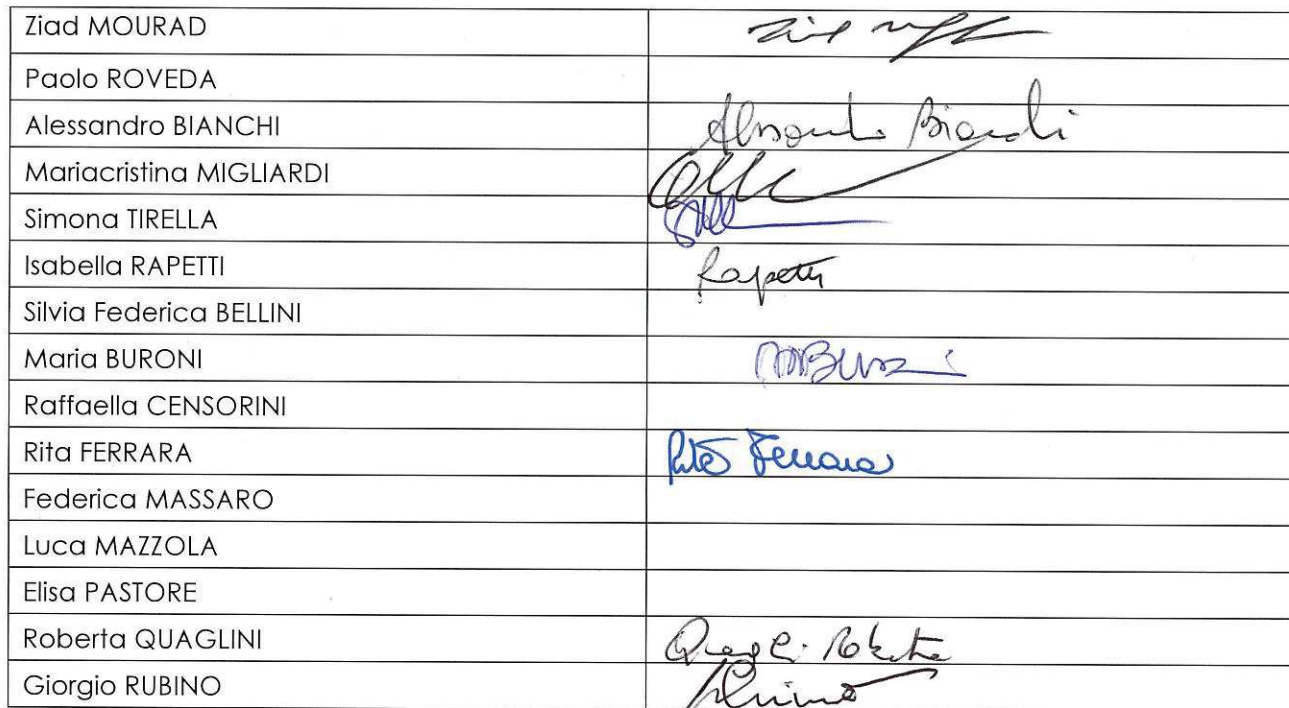 Ziad MOURAD
Paolo ROVEDA
Alessandro BIANCHI Alessandro Bianchi
Mariacristina MIGLIARDI
Simona TIRELLA
Isabella RAPETTI Rapetti
Silvia Federica BELLINI
Maria BURONI
Raffaella CENSORINI
Rita FERRARA Rita Ferrara
Federica MASSARO
Luca MAZZOLA
Elisa PASTORE
Roberta QUAGLINI
Giorgio RUBINO